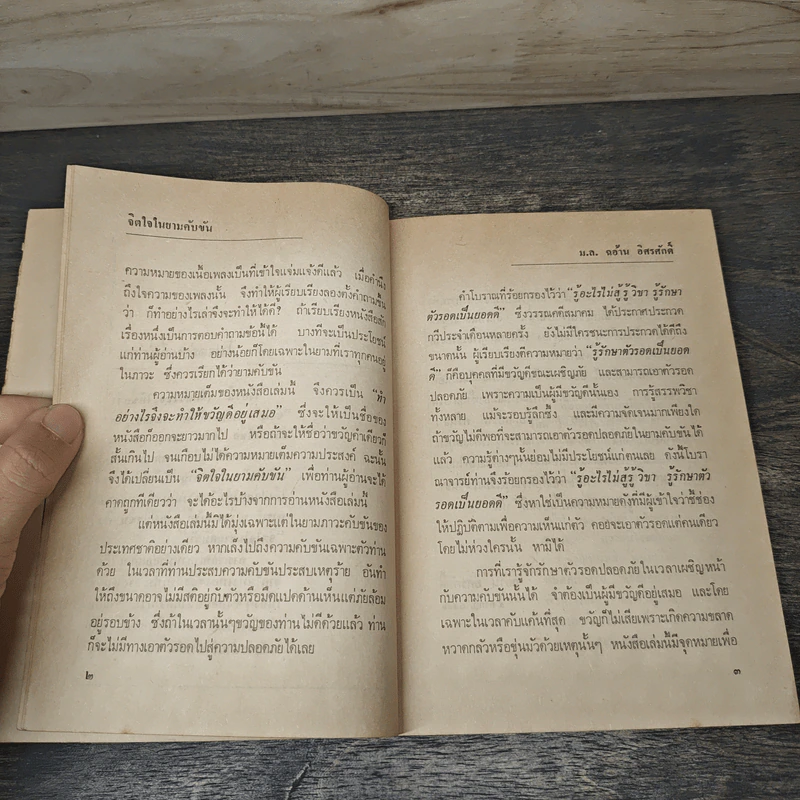 จิตใจในยามคับขัน
ความหมายของเนื้อเพลงเป็นที่เข้าใจแจ่มแจ้งดีแล้ว เมื่อคำนึง
ถึงใจความของเพลงนั้น จึงทำให้ผู้เรียบเรียงลองตั้งคำถามขึ้น
ว่า ก็ทำอย่างไรเล่าจึงจะทำให้ได้ดี? ถ้าเรียบเรียงหนังสือสัก
เรื่องหนึ่งเป็นการตอบคำถามข้อนี้ได้ บางทีจะเป็นประโยชน์
แก่ท่านผู้อ่านบ้าง อย่างน้อยก็โดยเฉพาะในยามที่เราทุกคนอยู่
ในภาวะ ซึ่งควรเรียกได้ว่ายามคับขัน
ความหมายเต็มของหนังสือเล่มนี้ จึงควรเป็น “ทำ
อย่างไรจึงจะทำให้ขวัญดีอยู่เสมอ” ซึ่งจะให้เป็นชื่อของ
หนังสือก็ออกจะยาวมากไป หรือถ้าจะให้ชื่อว่าขวัญคำเดียวก็
สั้นเกินไป จนเกือบไม่ได้ความหมายเต็มความประสงค์ ฉะนั้น
จึงได้เปลี่ยนเป็น “จิตใจในยามคับขัน” เพื่อท่านผู้อ่านจะได้
คาดถูกทีเดียวว่า จะได้อะไรบ้างจากการอ่านหนังสือเล่มนี้
แต่หนังสือเล่มนี้มิได้มุ่งเฉพาะแต่ในยามภาวะคับขันของ
ประเทศชาติอย่างเดียว หากเล็งไปถึงความคับขันเฉพาะตัวท่าน
ด้วย ในเวลาที่ท่านประสบความคับขันประสบเหตุร้าย อันทำ
ให้ถึงขนาดอาจไม่มีสติอยู่กับตัวหรือมืดแปดด้านเห็นแต่ภัยล้อม
อยู่รอบข้าง ซึ่งถ้าในเวลานั้นๆขวัญของท่านไม่ดีด้วยแล้ว ท่าน
ก็จะไม่มีทางเอาตัวรอดไปสู่ความปลอดภัยได้เลย
๒
ม.ล. ฉอ้าน อิศรศักดิ์
คำโบราณที่ร้อยกรองไว้ว่า “รู้อะไรไม่สู้ รู้ วิชา รู้รักษา
ตัวรอดเป็นยอดดี” ซึ่งวรรณคดีสมาคม ได้ประกาศประกวด
กวีประจำเดือนหลายครั้ง ยังไม่มีใครชนะการประกวดได้ดีถึง
ขนาดนั้น ผู้เรียบเรียงตีความหมายว่า “รู้รักษาตัวรอดเป็นยอด
ดี” ก็คือบุคคลที่มีขวัญดีขณะเผชิญภัย และสามารถเอาตัวรอด
ปลอดภัย เพราะความเป็นผู้มีขวัญดีนั้นเอง การรู้สรรพวิชา
ทั้งหลาย แม้จะรอบรู้ลึกซึ้ง และมีความจัดเจนมากเพียงใด
ถ้าขวัญไม่ดีพอที่จะสามารถเอาตัวรอดปลอดภัยในยามคับขันได้
แล้ว ความรู้ต่างๆนั้นย่อมไม่มีประโยชน์แก่ตนเลย ดังนี้โบรา
ณาจารย์ท่านจึงร้อยกรองไว้ว่า “รู้อะไรไม่สู้รู้ วิชา รู้รักษาตัว
รอดเป็นยอดดี” ซึ่งหาใช่เป็นความหมายดังที่มีผู้เข้าใจว่าชี้ช่อง
ให้ปฏิบัติตามเพื่อความเห็นแก่ตัว คอยจะเอาตัวรอดแต่คนเดียว
โดยไม่ห่วงใครนั้น หามิได้
การที่เรารู้จักรักษาตัวรอดปลอดภัยในเวลาเผชิญหน้า
กับความคับขันนั้นได้ จำต้องเป็นผู้มีขวัญดีอยู่เสมอ และโดย
เฉพาะในเวลาคับแค้นที่สุด ขวัญก็ไม่เสียเพราะเกิดความขลาด
หวาดกลัวหรือขุ่นมัวด้วยเหตุนั้นๆ หนังสือเล่มนี้มีจุดหมายเพื่อ
๓